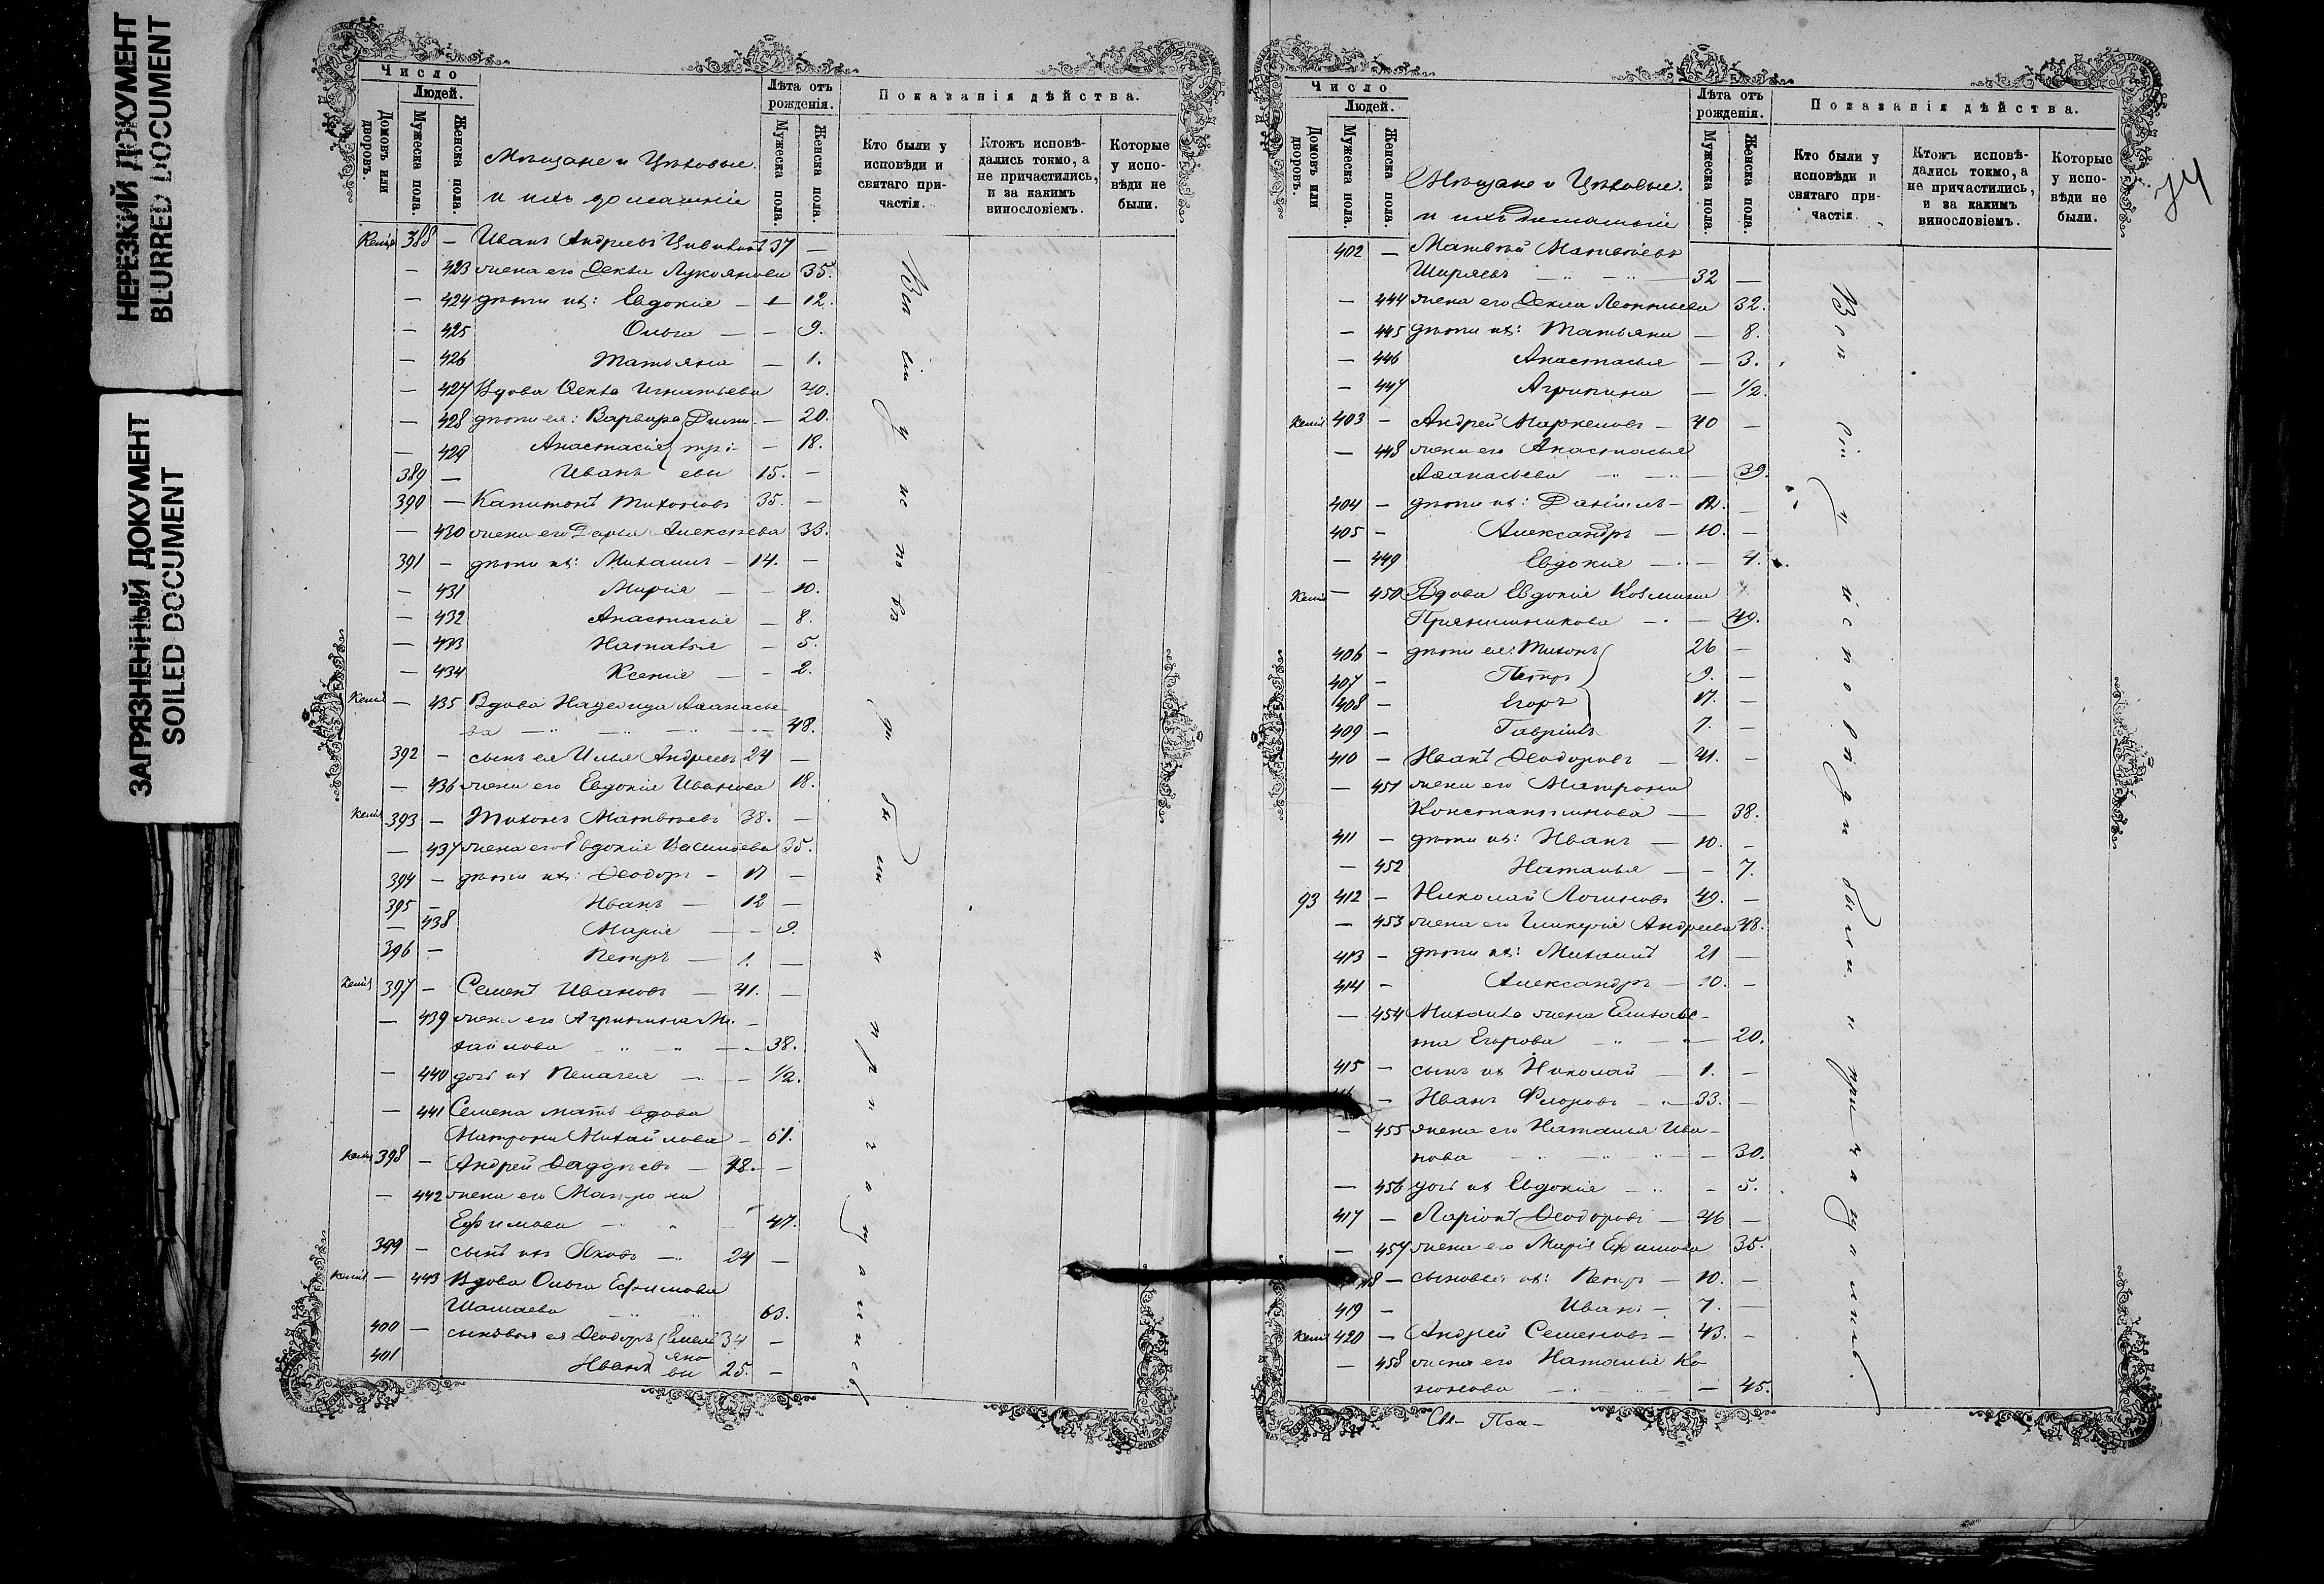 НЕРЕЗКИЙ ДОКУМЕНТ
BLURRED DOCUMENT
ЗАГРЯЗНЕННЫЙ ДОКУМЕНТ
SOILED DOCUMENT
Число
Людей.
Домовъ или дворовъ.
Мужеска пола.
Женска пола.
Мѣщане и Цѣховые
и ихъ домашніе
Лѣта отъ рожденія.
Мужеска пола.
Женска пола.
Показанія дѣйства.
Кто были у исповѣди и святаго причастія.
Ктожъ исповѣдались токмо, а не причастились, и за какимъ винословіемъ.
Которые у исповѣди не были.
388 — Иванъ Андреевъ 37 —
— 423 жена его Ѳекла Лукоянова 35.
— 424 дѣти ихъ: Евдокія — 12.
— 425 Ольга — — 9.
— 426 Татьяна — 1.
— 427 Вдова Ѳекла Игнатьева 40.
— 428 дѣти ея: Варвара Дими- — 20.
— 429 Анастасія трі- — 18.
389 — Иванъ евы 15. —
390 — Капитонъ Тихоновъ 35. —
— 430 жена его Дарья Алексѣева 33.
391 — дѣти ихъ: Михаилъ — 14. —
— 431 Марія — — 10.
— 432 Анастасія — 8.
— 433 Наталья — 5.
— 434 Ксенія — — 2.
— 435 Вдова Надежда Аѳанасье-
ва — — — — 48.
392 — сынъ ея Илья Андреевъ 24 —
— 436 жена его Евдокія Иванова 18.
393 — Тихонъ Матвѣевъ 38. —
— 437 жена его Евдокія Васильева 35.
394 — дѣти ихъ: Ѳеодоръ — 17 —
395 — Иванъ — 12 —
— 438 Марія — — 9.
396 — Петръ — 1. —
397 — Семенъ Ивановъ — 41. —
— 439 жена его Агрипина Ми- —
хайлова — 38.
— 440 дочь ихъ Пелагея — — 1/2.
— 441 Семена мать вдова
Матрона Михайлова — 61.
398 — Андрей Ѳаддѣевъ — 48. —
— 442 жена его Матрона
Ефимова — 47.
399 — сынъ ихъ Яковъ — 24 —
— 443 Вдова Ольга Ефимова
Шамаева 63.
400 — сыновья ея Ѳеодоръ Емель 34 —
401 Иванъ яно- вы 25. —
Всѣ у исповѣди были и причащались
Число
Людей.
Домовъ или дворовъ.
Мужеска пола.
Женска пола.
Мѣщане и Цѣховые.
и ихъ домашніе
Лѣта отъ рожденія.
Мужеска пола.
Женска пола.
Показанія дѣйства.
Кто были у исповѣди и святаго причастія.
Ктожъ исповѣдались токмо, а не причастились, и за какимъ винословіемъ.
Которые у исповѣди не были.
74
402 — Матвѣй Матвѣевъ
Ширяевъ — 32 —
— 444 жена его Ѳекла Леонтьева 32.
— 445 дѣти ихъ: Татьяна — 8.
— 446 Анастасья — 3.
— 447 Агрипина — 1/2.
403 — Андрей Маркеловъ — 40 —
— 448 жена его Анастасья
Аѳанасьева — 39.
404 — дѣти ихъ: Даніилъ — 12. —
405 — Александръ — 10. —
— 449 Евдокія — — 4.
— 450 Вдова Евдокія Козмина
Прянишникова — — 49.
406 — дѣти ея: Тихонъ 26 —
407 — Петръ 9. —
408 — Егоръ 17. —
409 — Гавріилъ 7. —
410 — Иванъ Ѳеодоровъ — 41. —
— 451 жена его Матрона
Константинова — 38.
411 — дѣти ихъ: Иванъ — 10. —
— 452 Наталья — — 7.
93 412 — Николай Логиновъ 49. —
— 453 жена его Гликерія Андреева 48.
413 — дѣти ихъ: Михаилъ 21 —
414 — Александръ — 10. —
— 454 Михаила жена Елизаве-
та Егорова — 20.
415 — сынъ ихъ Николай — 1. —
— Иванъ Флоровъ — 33. —
— 455 жена его Наталья Ива-
нова — 30.
— 456 дочь ихъ Евдокія — 5.
417 — Ларіонъ Ѳеодоровъ — 46 —
— 457 жена его Марія Ефимова 35.
— сыновья ихъ: Петръ — 10. —
419 — Иванъ — 7. —
420 — Андрей Семеновъ — 43. —
— 458 жена его Наталья Ко-
нонова — — 45.
Всѣ у исповѣди были и причащались.